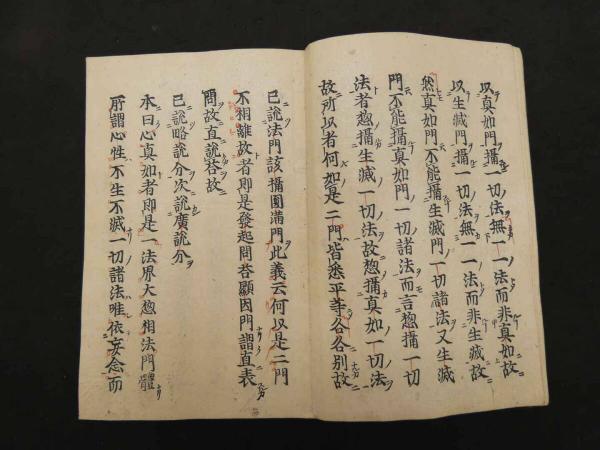 以真如門攝一切法無一一法而非真如故
以生滅門攝一切法無一一法而非生滅故
然真如門不能攝生滅門一切諸法又生滅
門不能攝真如門一切諸法而言惣攝一切
法者惣攝生滅一切法故惣攝真如一切法
故所以者何如是二門皆悉平等各各別故
已說法門該攝圓滿門此義云何以是二門
不相離故者即是發起問荅顯因門謂直表
問故直說荅故
已說略說分次說廣說分
本曰心真如者即是一法界大惣相法門體
所謂心性不生不滅一切諸法唯依妄念而